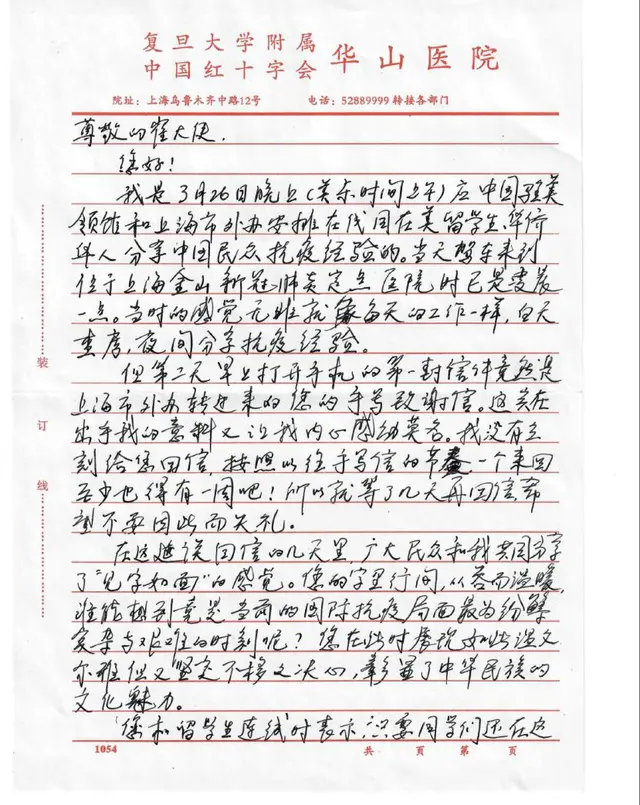 复旦大学附属
中国红十字会 华山医院
院址：上海乌鲁木齐中路12号 电话：52889999 转接各部门
尊敬的崔大使.
您好！
我是3月26日晚上（美东时间上午）应中国驻美
领馆和上海市外办安排在线同在美留学生、华侨
华人分享中国民众抗疫经验的。当天驾车来到
位于上海金山新冠肺炎定点医院时已是凌晨
一点。当时的感觉无非就像每天的工作一样，白天
查房，夜间分享抗疫经验。
但第二天早上打开手机的第一封信件竟然是
上海市外办转过来的您的手写致谢信。这实在
出乎我的意料又让我内心感动莫名。我没有立
刻给您回信，按照以往手写信的节奏一个来回
至少也得有一周吧！所以就等了几天再回信，希
望不要因此而失礼。
在这建议回信的几天里，广大民众和我共同分享
了“见字如面”的感觉。您的字里行间，从容而温暖，
谁能想到竟是当前的国际抗疫局面最为纷繁
复杂与艰难的时刻呢？您在此时展现如此温文
尔雅但又坚定不移之决心，彰显了中华民族的
文化魅力。
您和留学生连线时表示，只要同学们还在这
装
订
线
1054 共 页 第 页